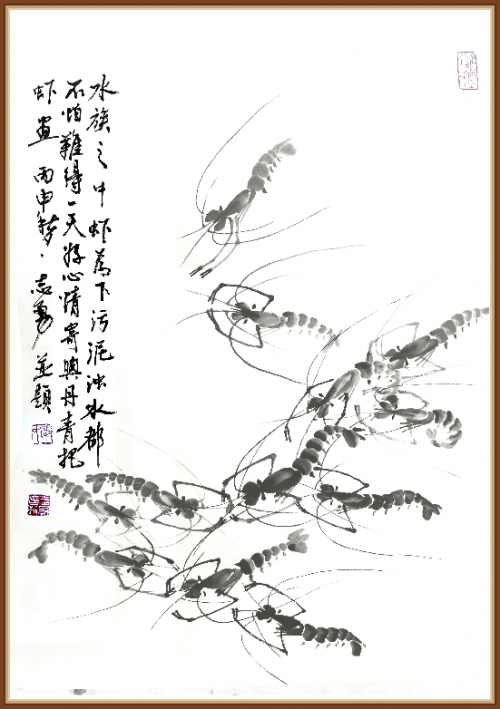 水族之中虾為下污泥浊水都
不怕難得一天好心情寄與丹青把
虾畫 丙申 志勇並題